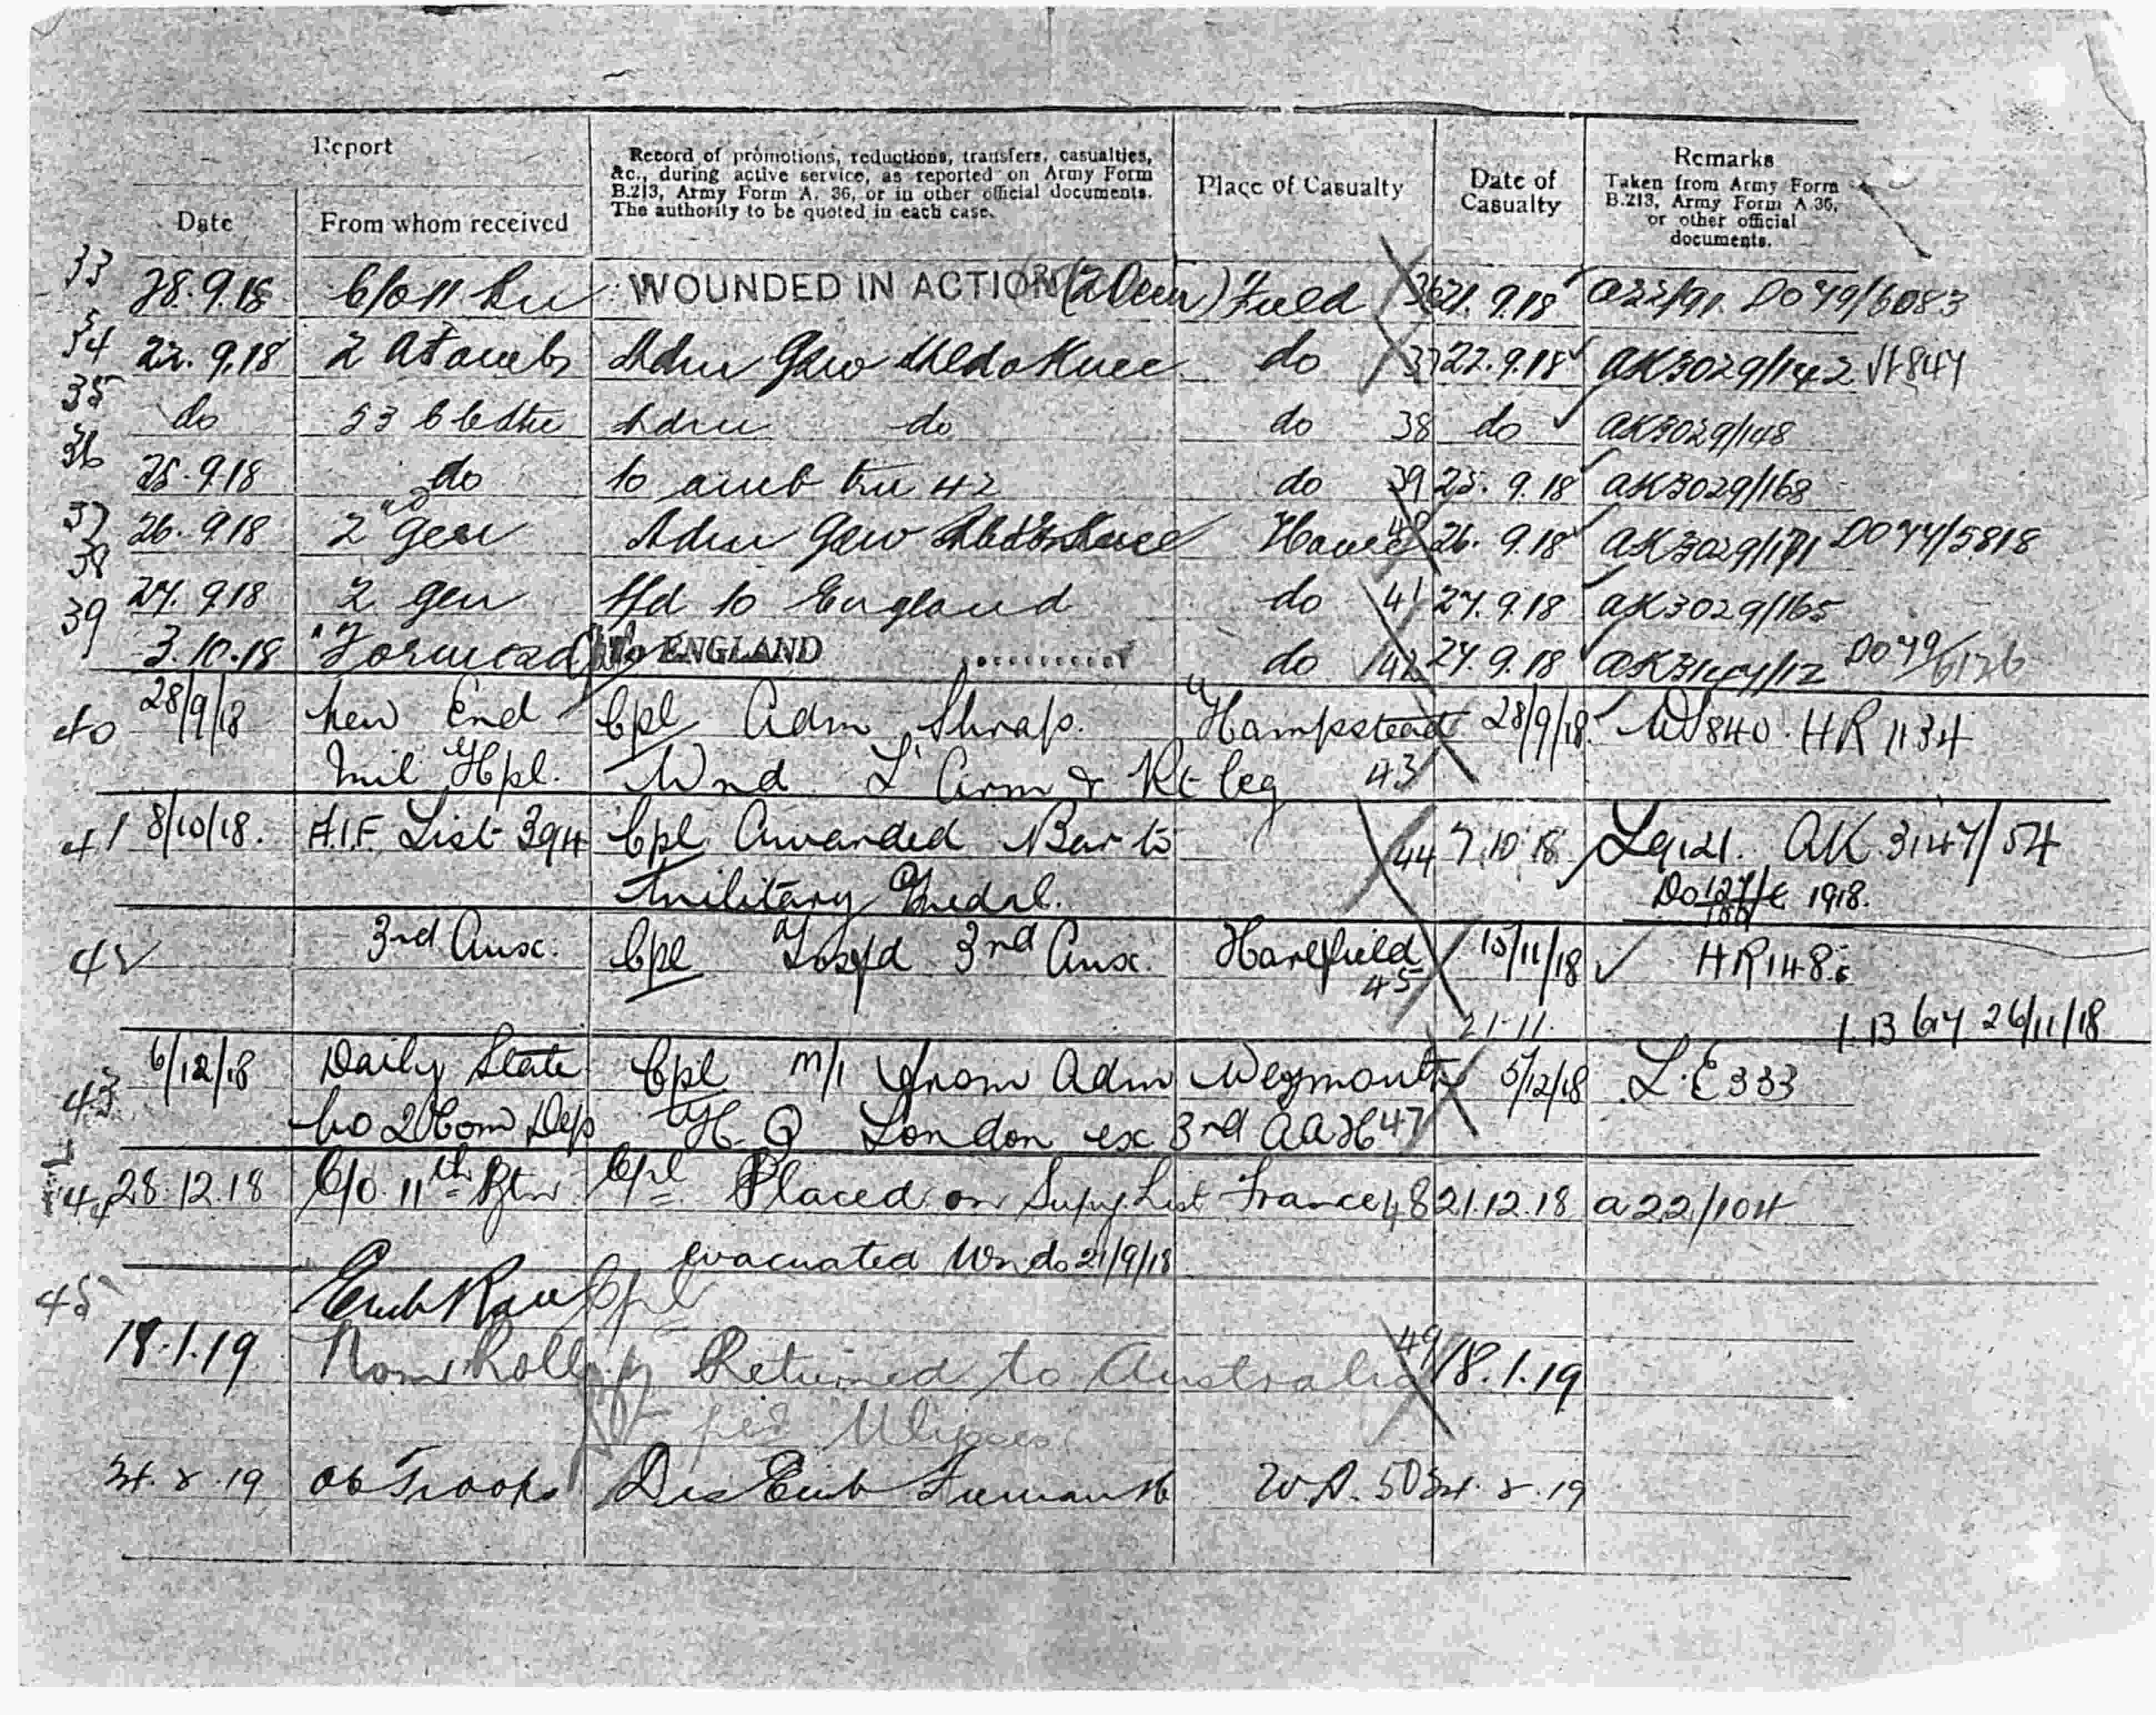 Report
Record of promotions, reductions, transfers, casualties,
&c., during active service, as reported on Army Form
B.213, Army Form A. 36, or in other official documents.
The authority to be quoted in each case.
Place of Casualty
Date of
Casualty
Remarks
Taken from Army Form
B.213, Army Form A 36,
or other official
documents.
Date
From whom received
33 28.9.18 C/O 11 WOUNDED IN ACTION Field 36 21.9.18 A22/91. DO 79/6083
34 22.9.18 2 Adm GSW Knee do 37 22.9.18 AK3029/142
35 do 53 C C Stn Adm do do 38 do AK3029/148
36 25.9.18 do To amb trn 42 do 39 25.9.18 AK3029/168
37 26.9.18 2 Gen Adm GSW Knee Havre 40 26.9.18 AK3029/171 DO 77/5818
38 27.9.18 2 Gen Tfd to England do 41 27.9.18 AK3029/165
39 3.10.18 to ENGLAND do 42 27.9.18
40 28/9/18 New End Cpl Adm Shrap. Hampstead 28/9/18 W840. HR 1134
Mil Hpl. Wnd L' Arm & Rt leg 43
41 8/10/18. A.I.F. List 394 Cpl Awarded Bar to 44 7.10.18 L9121. AK 3147/54
Military Medal. 1918.
42 3rd Aux. Cpl Tosfd 3rd Aux. Harefield 15/11/18 HR148
45
21.11. 26/11/18
43 6/12/18 Daily State Cpl M/I from Adm Weymouth 5/12/18 L.E333
Co 2 Com Dep H.Q London ex 3rd AAH 47
44 28.12.18 C/O. 11th Btn. Cpl Placed on Supy. List France 48 21.12.18 A22/104
evacuated Wnds 21/9/18
45 Cpl
18.1.19 Nom Roll Returned to Australia 49 18.1.19
per Ulysses
Ob Troops Dis Emb W.A. 50